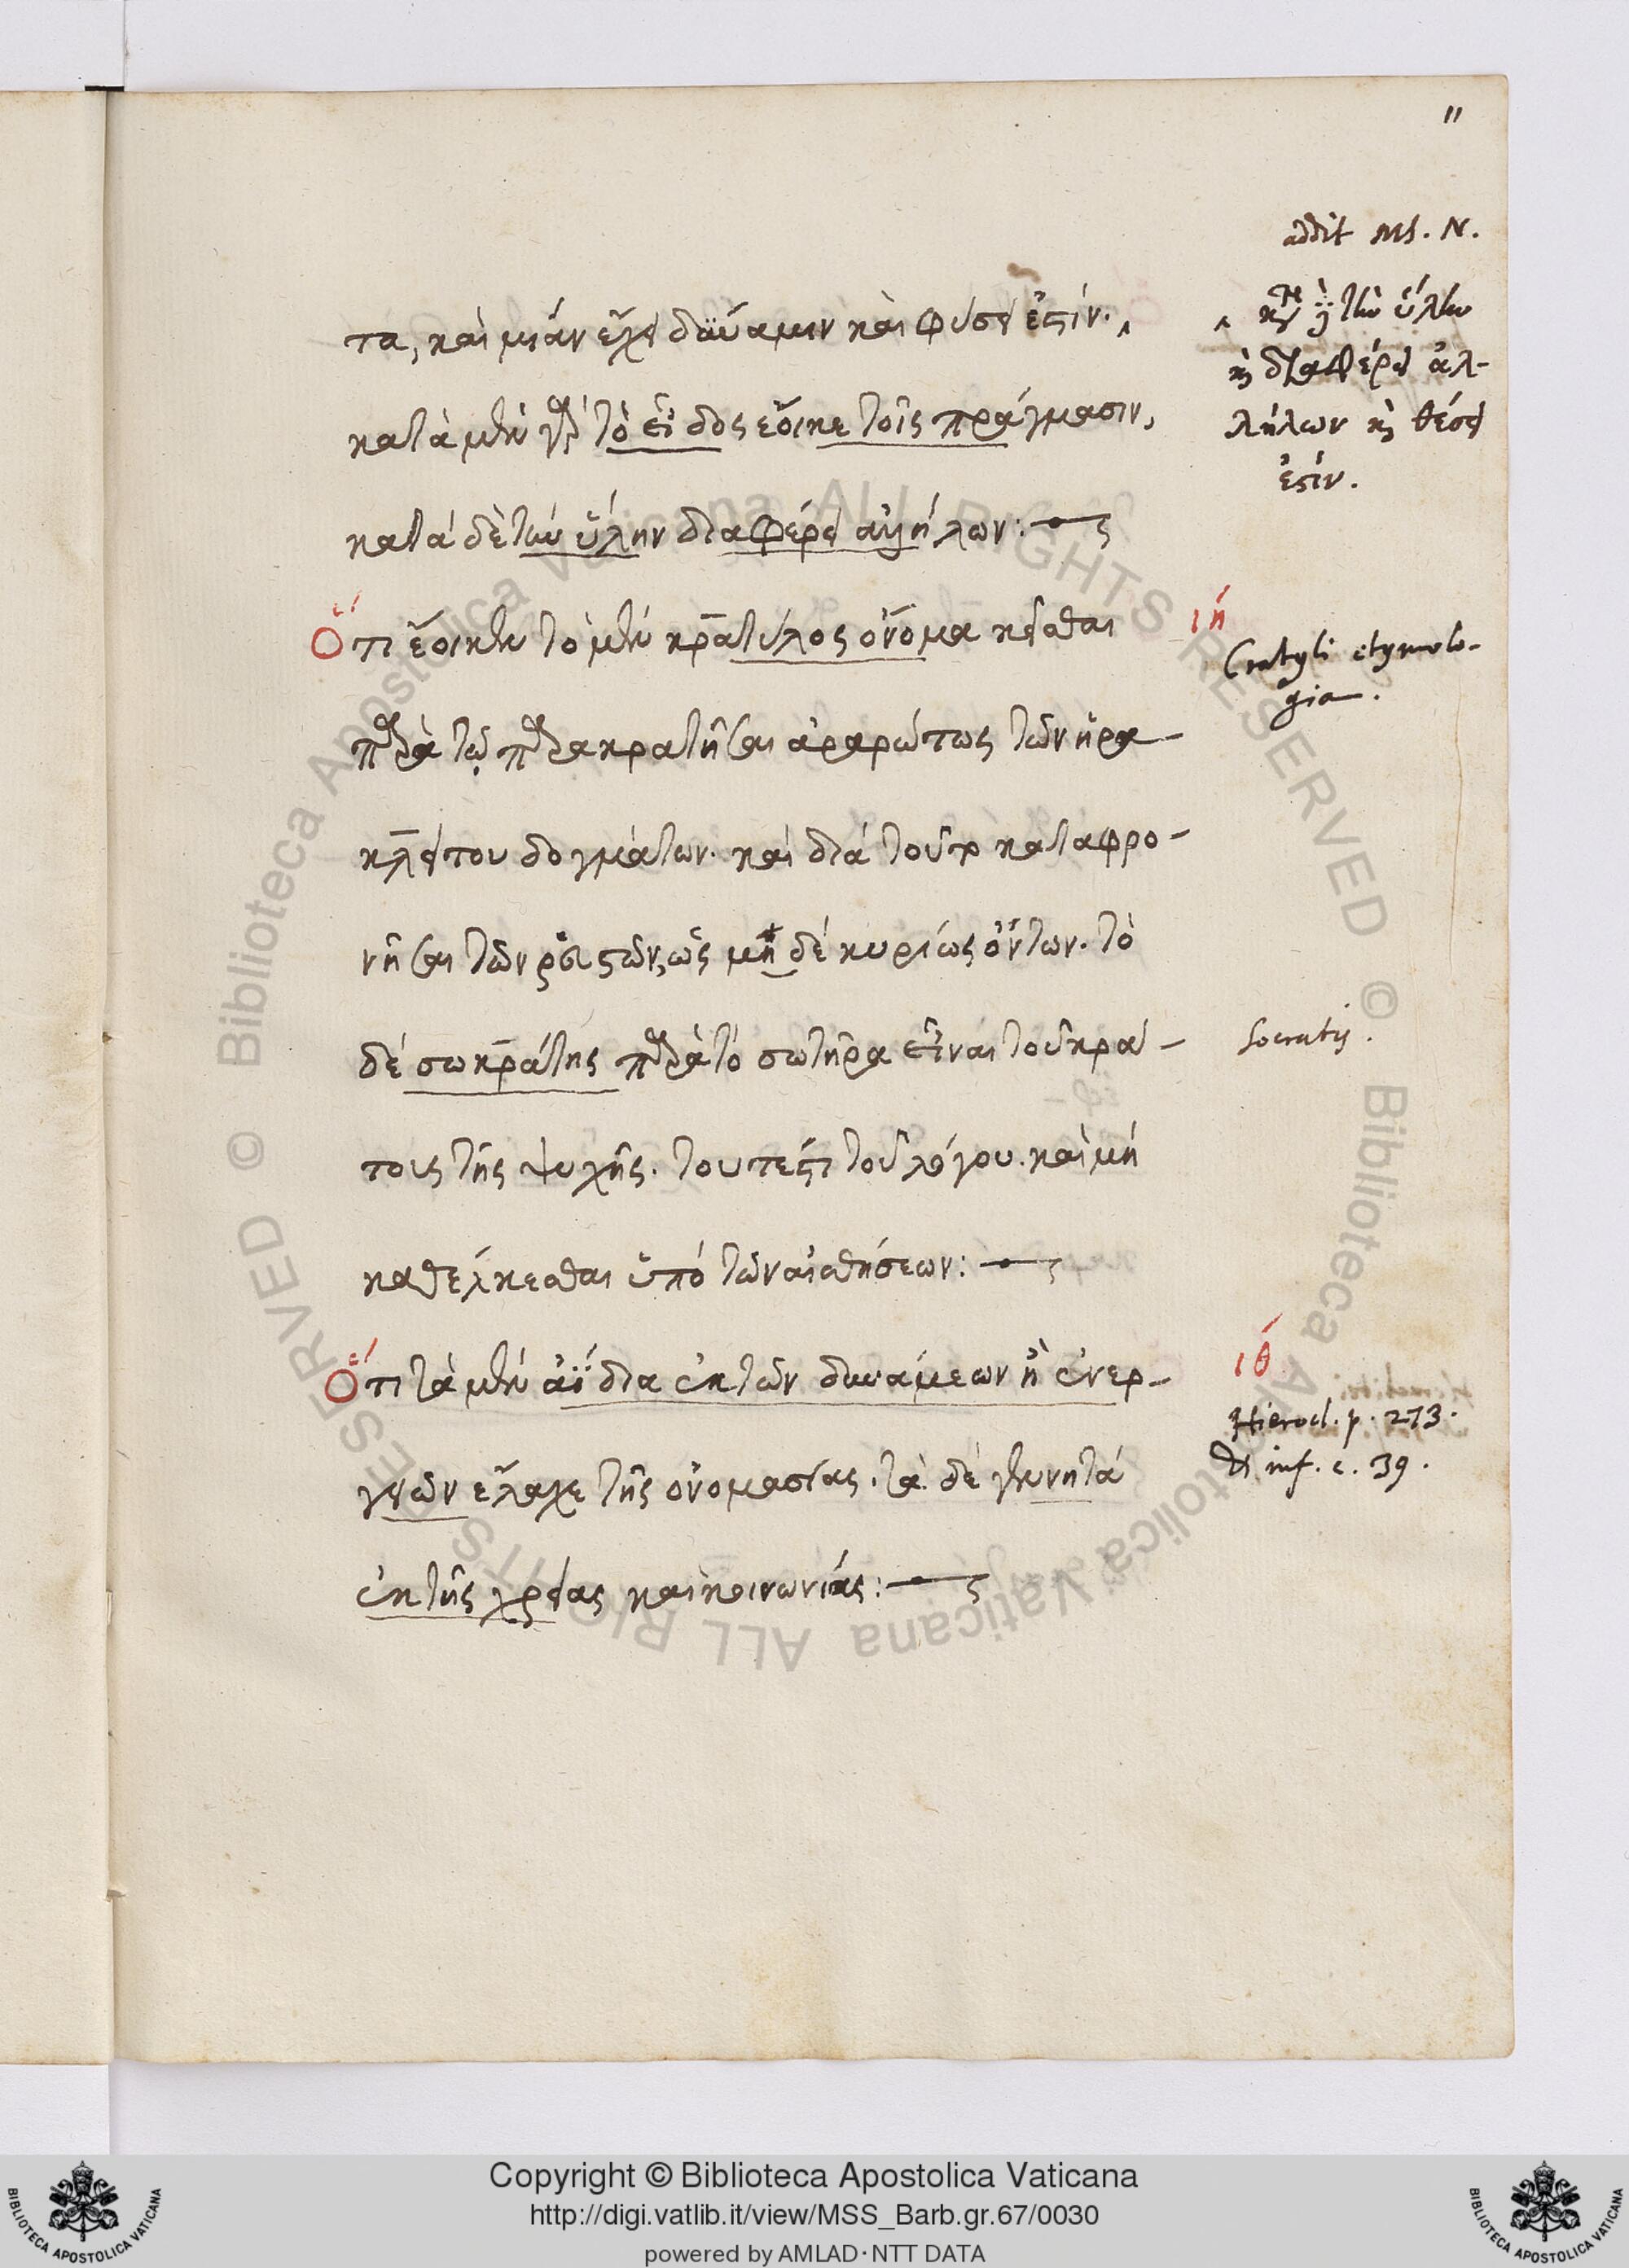 11
addit Ms. N.
τα, καὶ μίαν ἔχει δύναμιν καὶ φύσει ἐστίν. ‸
κατὰ μὲν γὰρ τὸ εἶδος ἔοικε τοῖς πράγμασιν,
κατὰ δὲ τὴν ὕλην διαφέρει ἀλλήλων:
‸ κατὰ δὲ τὴν ὕλην
καὶ διαφέρει ἀλ-
λήλων καὶ θέσει
ἐστίν.
Ὅτι ἔοικεν τὸ μὲν κρατύλος ὄνομα κεῖσθαι
παρὰ τῷ περικρατῆσαι ἀραρώτως τῶν ἡρα-
κλείτου δογμάτων. καὶ διὰ τοῦτο καταφρο-
νῆσαι τῶν ῥευστῶν, ὡς μηδὲ κυρίως ὄντων. τὸ
δὲ σωκράτης παρὰ τὸ σωτῆρα εἶναι τοῦ κρά-
τους τῆς ψυχῆς. τουτέστι τοῦ λόγου. καὶ μὴ
καθέλκεσθαι ὑπὸ τῶν αἰσθήσεων:
ιή
Cratyli etymolo-
gia.
Socratis.
Ὅτι τὰ μὲν ἀΐδια ἐκ τῶν δυνάμεων ἢ ἐνερ-
γειῶν ἔλαχε τῆς ὀνομασίας. τὰ δὲ γενητὰ
ἐκ τῆς χρείας καὶ κοινωνίας:
ιθ
Hierocl. p. 273.
et inf. c. 39.
Copyright © Biblioteca Apostolica Vaticana
http://digi.vatlib.it/view/MSS_Barb.gr.67/0030
powered by AMLAD·NTT DATA
BIBLIOTECA APOSTOLICA VATICANA
BIBLIOTECA APOSTOLICA VATICANA
© Biblioteca Apostolica Vaticana ALL RIGHTS RESERVED © Biblioteca Apostolica Vaticana ALL RIGHTS RESERVED